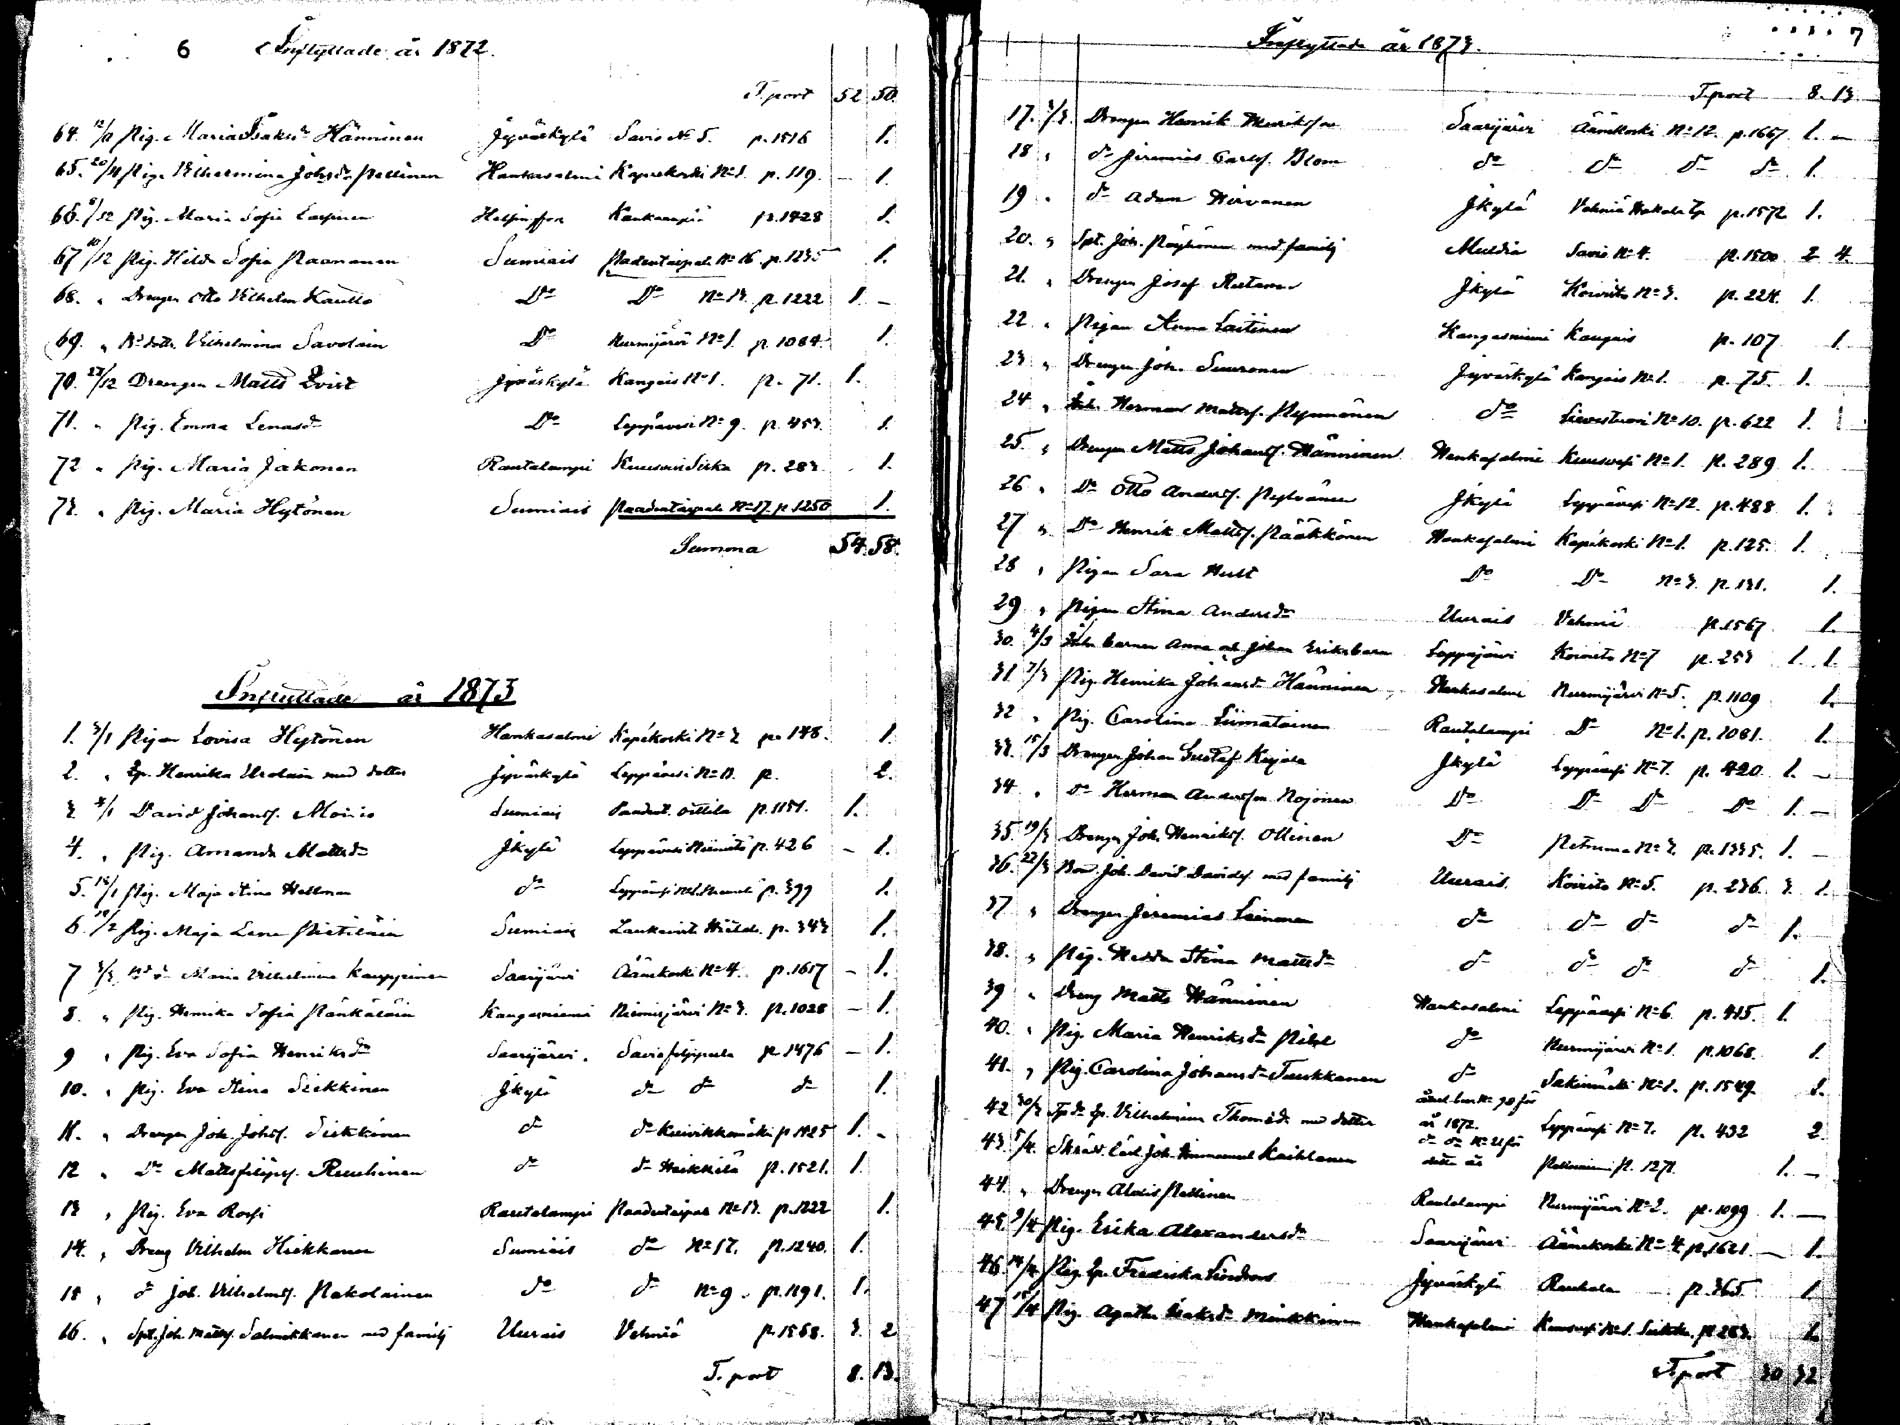 6 Inflyttade år 1872.
T.port 52 50
64. 12/11 Pig. Maria Isaksdr Hänninen Jyväskylä Savio No 5. p.1516 1.
65. 20/11 Pig. Vilhelmina Johsdr Pellinen Hankasalmi Kapeekoski No 1. p.119. – 1.
66. 5/12 Pig. Maria Sofia Helsingfors p.1428 1.
67 10/12 Pig. Hilda Sofia Paananen Sumiais Paadentaipale No 16. p.1235 1.
68. " Drengen Otto Vilhelm Kautto Do Do No 13. p.1222 1. –
69. " Vilhelmina Savolain Do Nurmijärvi No 1. p.1084. 1.
70. 23/12 Drengen Matts Qvist Jyväskylä Kangais No 1. p. 71. 1.
71. " Pig. Emma Lenasdr Do Leppävesi No 9. p.453. 1.
72 " Pig. Maria Jakonen Rautalampi Kuusvesi p. 283. 1.
73. " Pig. Maria Hytönen Sumiais Paadentaipale No 17. p.1250 1.
Summa 54. 58.
Inflyttade år 1873
1. 3/1 Pigan Lovisa Hytönen Hankasalmi Kapékoski No 3 p. 148. 1.
2. " Ep. Henrika Urolain med dotter Jyväskylä Leppävesi p. 2.
3 4/1 David Johanss. Sumiais p.1151. 1.
4. " Pig. Amanda Mattsdr Jkylä Leppävesi Niinistö p.426 – 1.
5. 15/1 Pig. Maja Stina Hellman do Leppävesi p.399 1.
6. 19/2 Pig. Maja Lena Pietiläin Sumiais p.343 1.
7 3/3 Maria Vilhelmina Kauppinen Saarijärvi Äänekoski No 4. p.1617 – 1.
8. " Pig. Henrika Sofia Pänkäläin Kangasniemi Niemisjärvi No 3. p.1028 – 1.
9 " Pig. Eva Sofia Henriksdr Saarijärvi. Savio p.1476 – 1.
10. " Pig. Eva Stina Siekkinen Jkylä do do do 1.
11. " Drengen Joh. Johss. Siekkinen do do Kuivikkomäki p.1425 1. –
12 " Do Matts Ruuhinen do do Heikkilä p.1521. 1.
13 " Pig. Eva Rossi Rautalampi Paadentaipale No 13. p.1222 1.
14. " Dreng Vilhelm Hiekkanen Sumiais do No 17. p.1240. 1.
15 " do Joh. Vilhelmss. Pakolainen do do No 9. p.1191. 1.
16. " Spt. Joh. Mattss. Salmikkanen med familj Uurais Vehniä p.1568. 3. 2
T. port 8. 13.
Inflyttade år 1873. 7
T.port 8. 13.
17. 3/3. Drengen Henrik Henriksson Saarijärvi Äänekoski No 12. p.1667 1. –
18 " do Jeremias Carlss. Blom do do do do 1.
19 " do Adam Hirvonen Jkylä Vehniä p.1572 1.
20. " Spt. Joh. Pöyhönen med familj Multia Savio No 4. p.1500 2 4.
21. " Drengen Josef Rutanen Jkylä Koivisto No 3. p.224. 1.
22 " Pigan Anna Laitinen Kangasniemi Kangais p. 107 1.
23 " Drengen Joh. Suuronen Jyväskylä Kangais No 1. p. 75. 1.
24 " Herman Mattss. Nynnönen do Lievestuori No 10. p. 622 1.
25. " Drengen Matts Johanss. Hänninen Hankasalmi Kuusvesi No 1. p. 289 1.
26 " Do Otto Anderss. Jkylä Leppävesi No 12. p.488 1.
27 " Do Henrik Mattss. Pääkkönen Hankasalmi Kapékoski No 1. p.125. 1.
28 " Pigan Sara Hult Do Do No 3. p.131. 1.
29 " Pigan Stina Andersdr Uurais Vehniä p.1567 1.
30. 4/3 barnen Anna och Johan Eriksbarn Leppäjärvi Koivisto No 7 p.253 1. 1.
31 7/3 Pig. Henrika Johansdr Hänninen Hankasalmi Nurmijärvi No 5. p.1109 1.
32 " Pig. Carolina Liimatainen Rautalampi Do No 1. p.1081. 1.
33. 15/3 Drengen Johan Gustaf Kujala Jkylä Leppävesi No 7. p. 420 1. –
34 " do Herman Andersson Nojonen Do Do Do Do 1. –
35. 19/3 Drengen Joh. Henrikss. Ollinen Do Petruma No 3. p.1335. 1. –
36. 22/3 Joh. David Davidss. med familj Uurais. Koivisto No 5. p.236. 3. 1.
37 " Drengen Jeremias Leinonen do do do do 1.
38. " Pig. Hedda Stina Mattsdr do do do do 1.
39 " Dreng Matts Hänninen Hankasalmi Leppävesi No 6. p.415. 1.
40. " Pig. Maria Henriksdr do Nurmijärvi No 1. p.1068. 1.
41. " Pig. Carolina Johansdr Tuukkanen do No 1. p.1549. 1.
42 30/3 Ep. Vilhelmina Thomasdr med dotter No 70 för år 1872. Leppävesi No 7. p. 432 2.
43. 5/4. Joh. Immanuel Kaihlanen do do No 21 för detta år p.1271. 1. –
44. " Drengen Alexis Pellinen Rautalampi Nurmijärvi No 2. p.1099 1. –
45. 9/4 Pig. Erika Alexandersdr Saarijärvi Äänekoski No 4. p.1621. – 1.
46. 14/4 Pig. Ep. Fredrika Lindroos Jyväskylä Rauhala p.365. 1
47 15/4 Pig. Agatha Isaksdr Minkkinen Hankasalmi Kuusvesi No 1. p.283. 1.
T.port 30 32